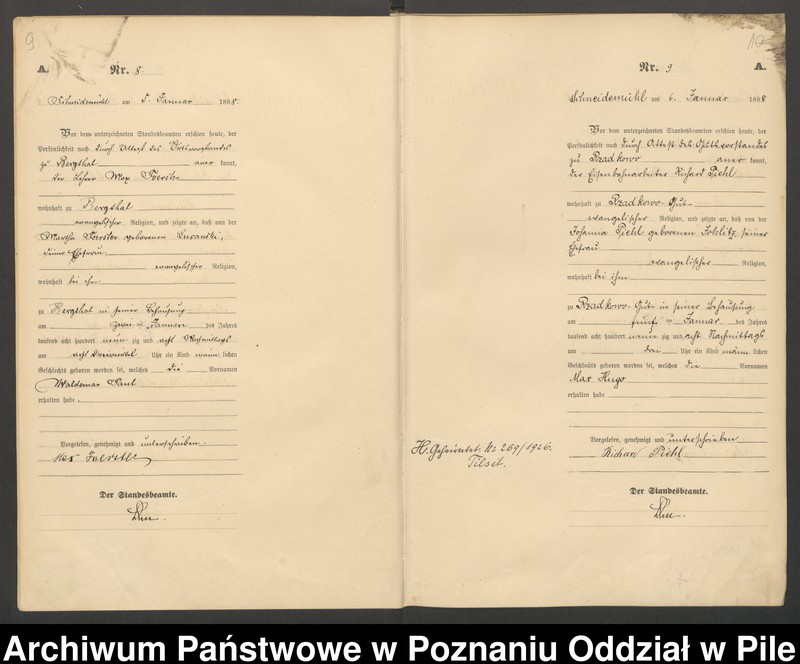 9
A.
Nr. 8.
Schneidemühl am 5. Januar 1898.
Vor dem unterzeichneten Standesbeamten erschien heute, der
Persönlichkeit nach durch Attest des Ortsvorstandes
zu Bergthal aner kannt,
der Lehrer Max Foerster
wohnhaft zu Bergthal
evangelischer Religion, und zeigte an, daß von der
Martha Foerster geborenen
seiner Ehefrau
evangelischer Religion,
wohnhaft bei ihm
zu Bergthal in seiner Behausung
am zwei ten Januar des Jahres
tausend acht hundert neun zig und acht Nachmittags
um Uhr ein Kind männ lichen
Geschlechts geboren worden sei, welches die Vornamen
Waldemar Paul
erhalten habe.
Vorgelesen, genehmigt und unterschrieben.
Max Foerster
Der Standesbeamte.
10
Nr. 9
A.
Schneidemühl am 6. Januar 1898
Vor dem unterzeichneten Standesbeamten erschien heute, der
Persönlichkeit nach durch Attest des Gutsvorstandes
zu Brzadkowo aner kannt,
der Eisenbahnarbeiter Richard Piehl
wohnhaft zu Brzadkowo-Gut
evangelischer Religion, und zeigte an, daß von der
Johanna Piehl geborenen seiner
Ehefrau
evangelischer Religion,
wohnhaft bei ihm
zu Brzadkowo-Gut in seiner Behausung
am fünf ten Januar des Jahres
tausend acht hundert neun zig und acht Nachmittags
um drei Uhr ein Kind männ lichen
Geschlechts geboren worden sei, welches die Vornamen
Max Hugo
erhalten habe
Vorgelesen, genehmigt und unterschrieben
Richard Piehl
Der Standesbeamte.
H. Geheiratet No 269/1926.
Tilsit.
Archiwum Państwowe w Poznaniu Oddział w Pile